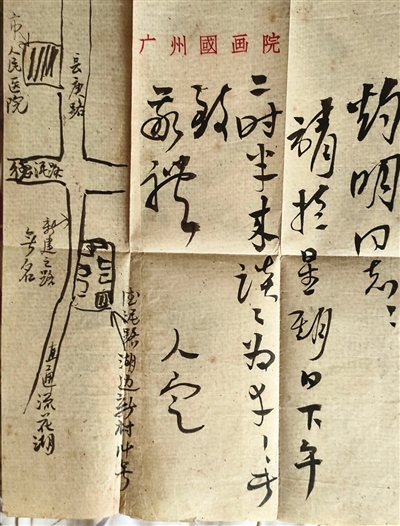 广州國画院
灼明同志：
請於星期日下午
二时半来谈〻为幸
致
敬礼
人定
市人民医院
長庚路
德坭路
新建之路
無名
直通流花湖
德坭路湖边新村廿号